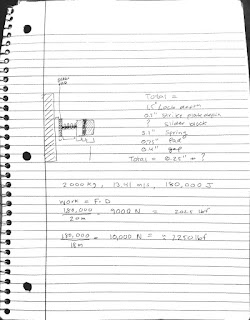 Total =
1.5" Lock depth
0.1" Striker plate depth
? Slider block
3.1" Spring
0.75" Pad
0.4" gap
Total = 6.25" + ?
2000 kg, 13.41 m/s, 180,000 J
Work = F · D
180,000
20m
= 9000 N = 2025 lbf
180,000
18m
= 10,000 N = 2250 lbf